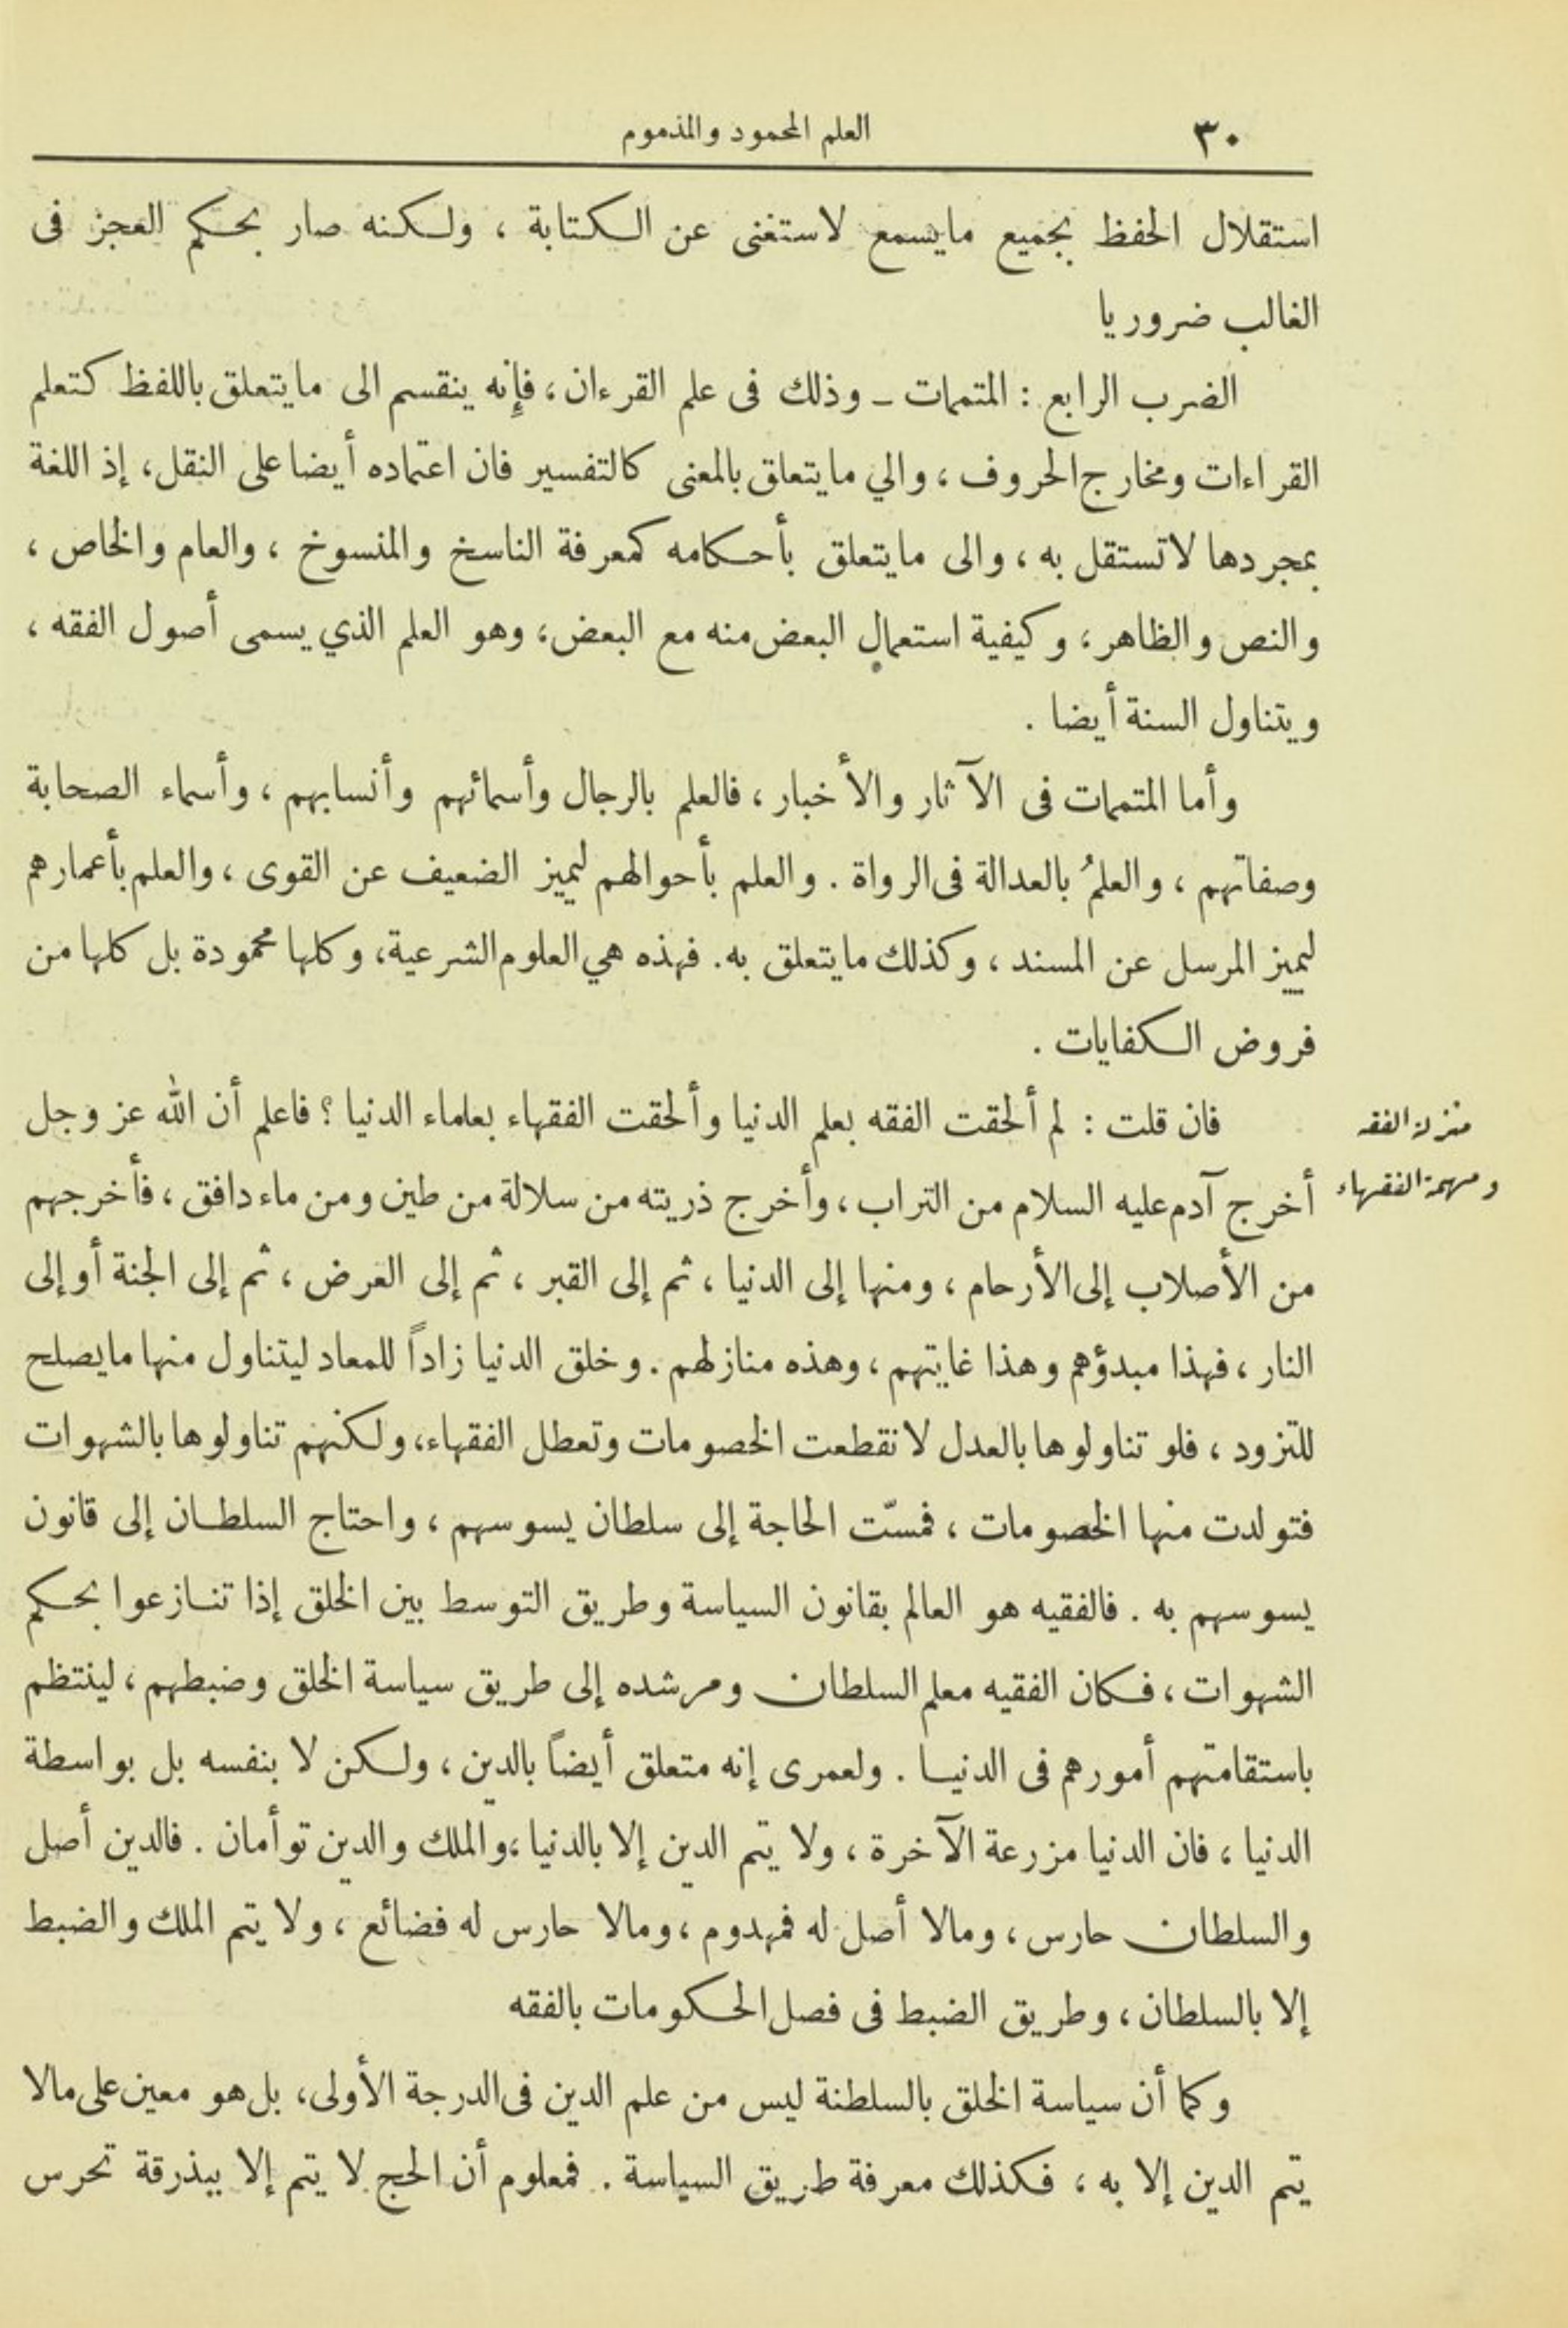 ٣٠
العلم المحمود والمذموم
استقلال الحفظ بجميع مايسمع لاستغنى عن الكتابة ، ولكنه صار بحكم العجز فى
الغالب ضروريا
الضرب الرابع : المتممات ـ وذلك فى علم القرءان ، فإنه ينقسم الى مايتعلق باللفظ كتعلم
القراءات ومخارج الحروف ، والي مايتعلق بالمعنى كالتفسير فان اعتماده أيضا على النقل ، إذ اللغة
بمجردها لاتستقل به ، والى مايتعلق بأحكامه كمعرفة الناسخ والمنسوخ ، والعام والخاص ،
والنص والظاهر ، وكيفية استعمال البعض منه مع البعض ، وهو العلم الذي يسمى أصول الفقه ،
ويتناول السنة أيضا .
وأما المتممات فى الآثار والأخبار ، فالعلم بالرجال وأسمائهم وأنسابهم ، وأسماء الصحابة
وصفاتهم ، والعلمُ بالعدالة فى الرواة . والعلم بأحوالهم ليميز الضعيف عن القوى ، والعلم بأعمارهم
ليميز المرسل عن المسند ، وكذلك مايتعلق به . فهذه هي العلوم الشرعية ، وكلها محمودة بل كلها من
فروض الكفايات .
منزلة الفقه
ومهمة الفقهاء
فان قلت : لم ألحقت الفقه بعلم الدنيا وألحقت الفقهاء بعلماء الدنيا ؟ فاعلم أن الله عز وجل
أخرج آدم عليه السلام من التراب ، وأخرج ذريته من سلالة من طين ومن ماء دافق ، فأخرجهم
من الأصلاب إلى الأرحام ، ومنها إلى الدنيا ، ثم إلى القبر ، ثم إلى العرض ، ثم إلى الجنة أو إلى
النار ، فهذا مبدؤهم وهذا غايتهم ، وهذه منازلهم . وخلق الدنيا زاداً للمعاد ليتناول منها مايصلح
للتزود ، فلو تناولوها بالعدل لانقطعت الخصومات وتعطل الفقهاء ، ولكنهم تناولوها بالشهوات
فتولدت منها الخصومات ، فمسّت الحاجة إلى سلطان يسوسهم ، واحتاج السلطان إلى قانون
يسوسهم به . فالفقيه هو العالم بقانون السياسة وطريق التوسط بين الخلق إذا تنازعوا بحكم
الشهوات ، فكان الفقيه معلم السلطان ومرشده إلى طريق سياسة الخلق وضبطهم ، لينتظم
باستقامتهم أمورهم فى الدنيا . ولعمرى إنه متعلق أيضاً بالدين ، ولكن لا بنفسه بل بواسطة
الدنيا ، فان الدنيا مزرعة الآخرة ، ولا يتم الدين إلا بالدنيا ، والملك والدين توأمان . فالدين أصل
والسلطان حارس ، ومالا أصل له فمهدوم ، ومالا حارس له فضائع ، ولا يتم الملك والضبط
إلا بالسلطان ، وطريق الضبط فى فصل الحكومات بالفقه
وكما أن سياسة الخلق بالسلطنة ليس من علم الدين فى الدرجة الأولى ، بل هو معين على مالا
يتم الدين إلا به ، فكذلك معرفة طريق السياسة . فمعلوم أن الحج لا يتم إلا ببذرقة تحرس